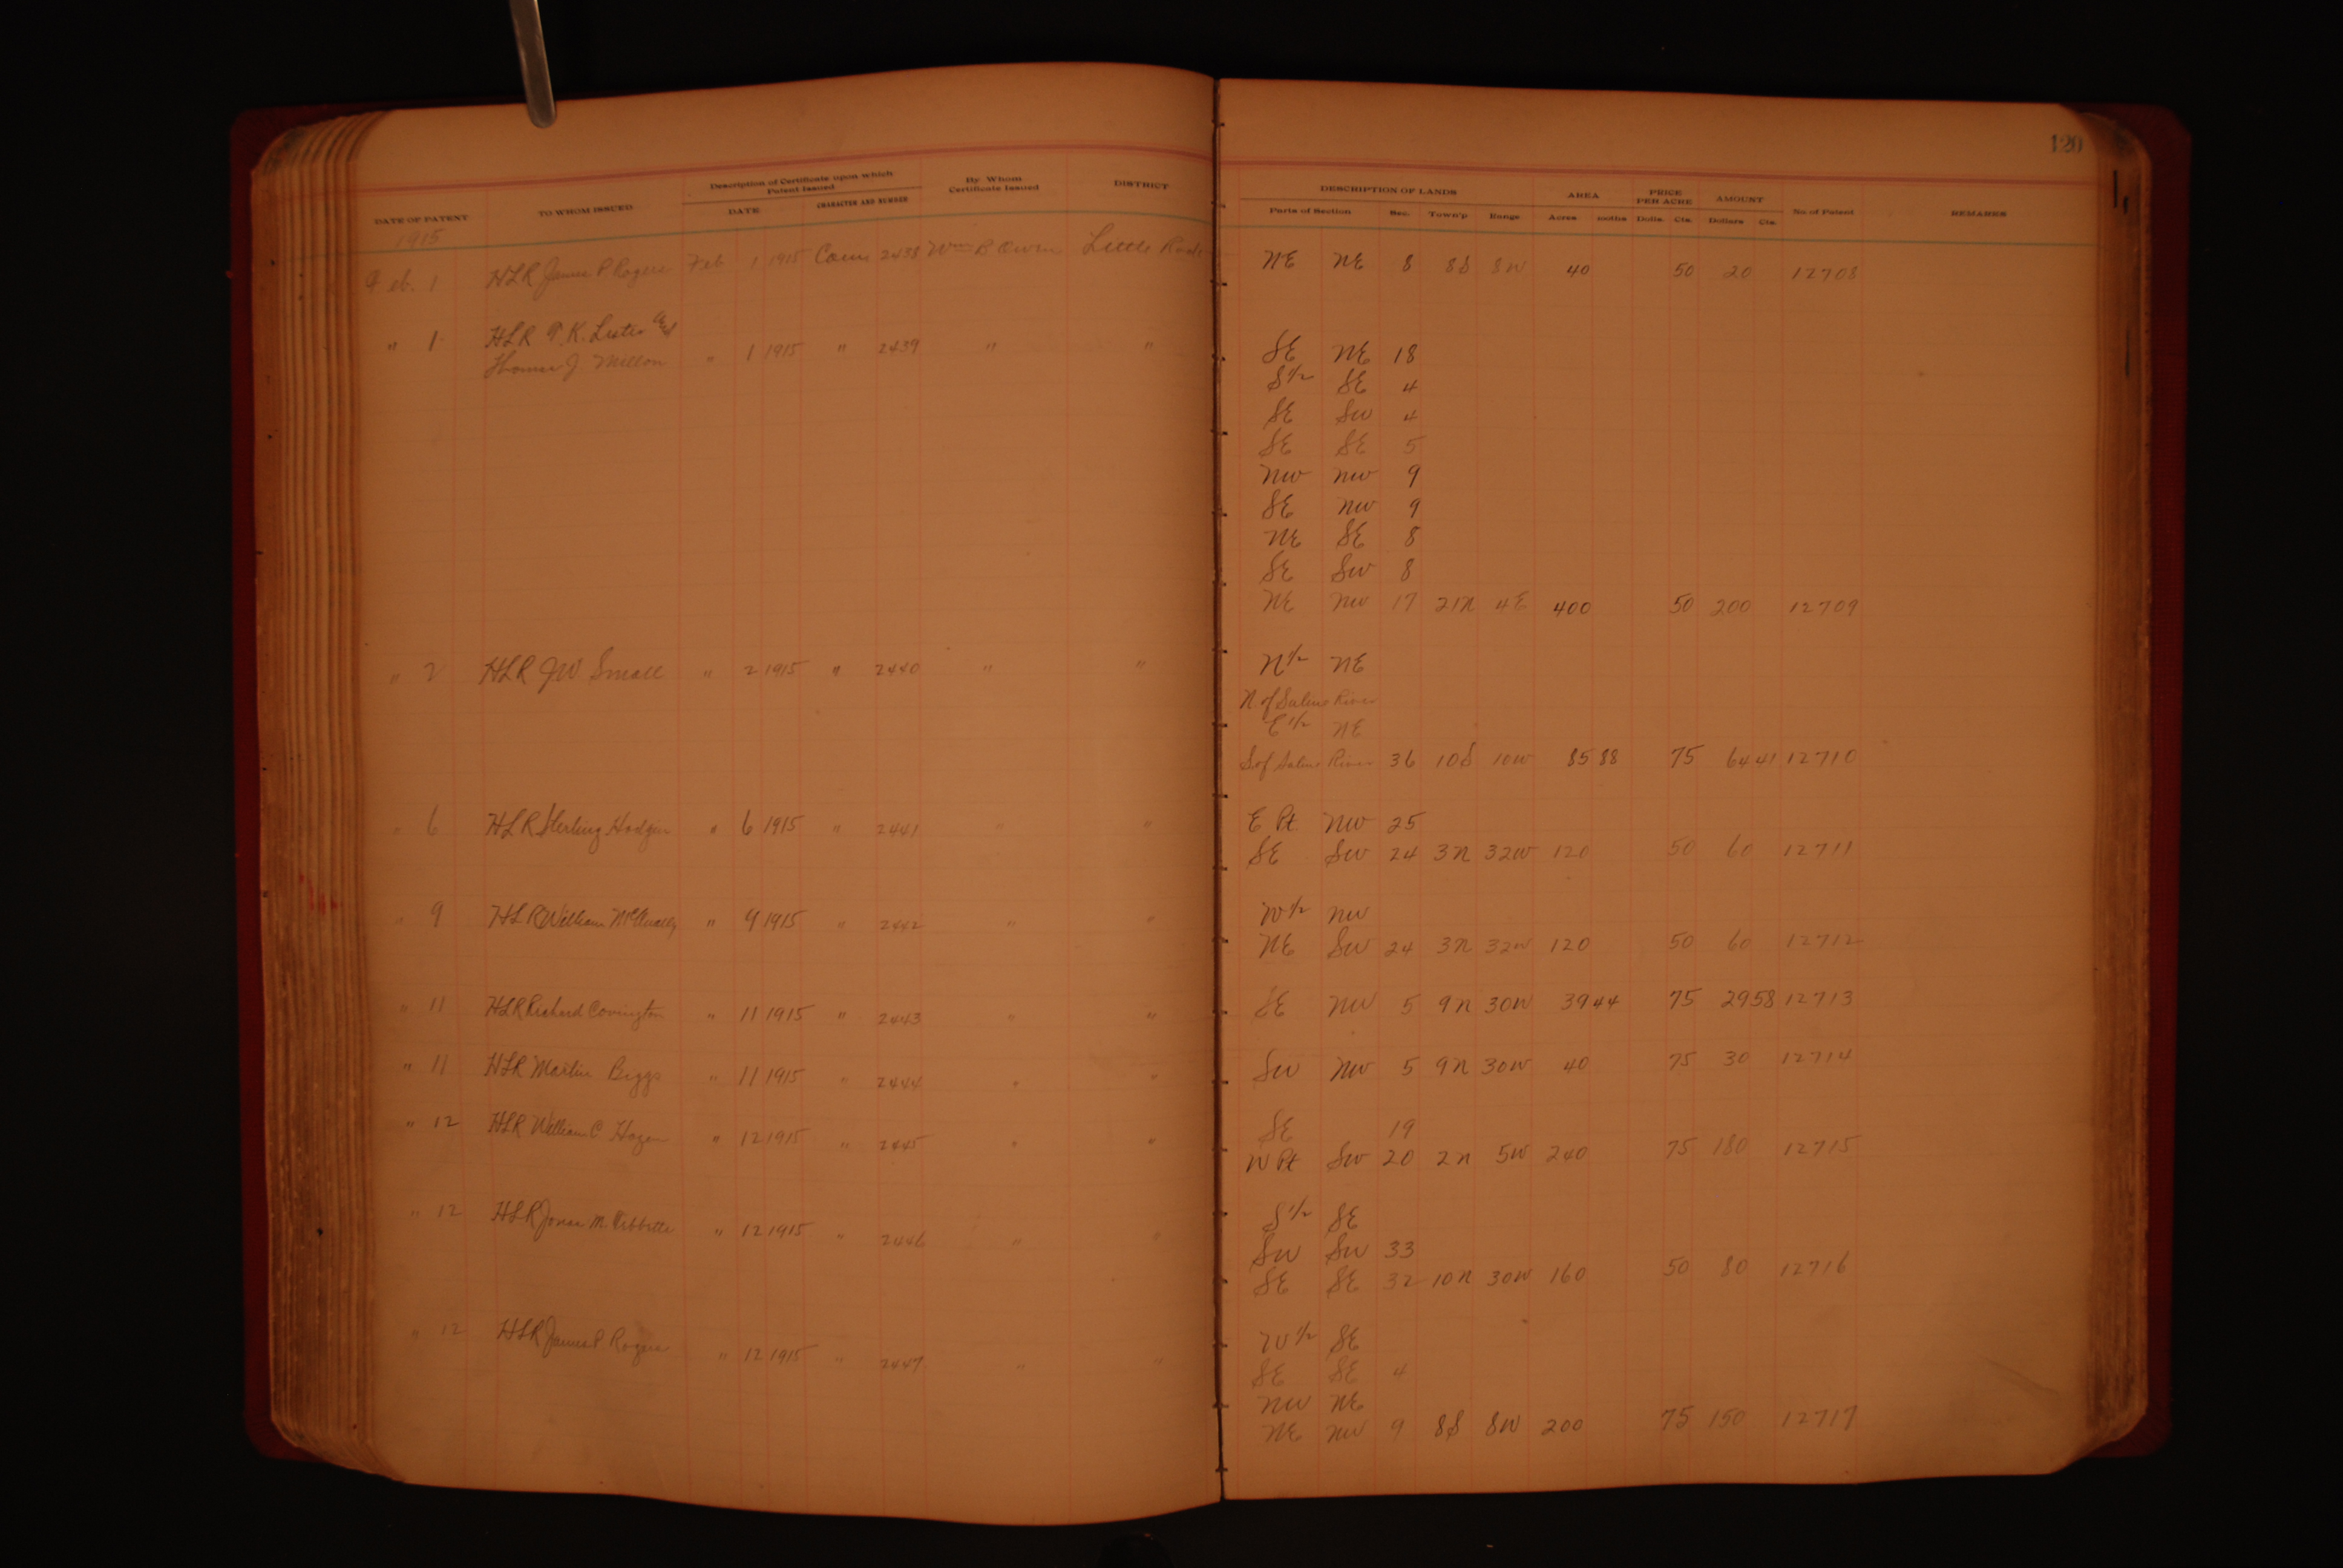 120
Description of Certificate upon which Patent Issued
By Whom Certificate Issued
DISTRICT
DESCRIPTION OF LANDS
AREA
PRICE PER ACRE
AMOUNT
DATE OF PATENT TO WHOM ISSUED DATE CHARACTER AND NUMBER
Parts of Section Sec. Town'p Range Acres 100ths Dolls. Cts. Dollars Cts. No of Patent REMARKS
1915
Feb. 1 HLR James P Rogers Feb 1 1915 Com 2438 Wm B Owen Little Rock NE NE 8 8S 8W 40 50 20 12708
" 1 HLR T. K. Lester and
Thomas J Millon " 1 1915 " 2439 " " SE NE 18
S 1/2 SE 4
SE SW 4
SE SE 5
NW NW 9
SE NW 9
NE SE 8
SE SW 8
NE NW 17 21N 4E 400 50 200 12709
" 2 HLR JW Small " 2 1915 " 2440 " " N 1/2 NE
N of Saline River
E 1/2 NE
S of Saline River 36 10S 10W 85 88 75 64 41 12710
" 6 HLR Sterling Hodgin " 6 1915 " 2441 " " E Pt NW 25
SE SW 24 3N 32W 120 50 60 12711
" 9 HLR William McAnally " 9 1915 " 2442 " " W 1/2 NW
NE SW 24 3N 32W 120 50 60 12712
" 11 HLR Richard Covington " 11 1915 " 2443 " " SE NW 5 9N 30W 39 44 75 29 58 12713
" 11 HLR Martin Biggs " 11 1915 " 2444 " " SW NW 5 9N 30W 40 75 30 12714
" 12 HLR William C Hagen " 12 1915 " 2445 " " SE 19
W Pt SW 20 2N 5W 240 75 180 12715
" 12 HLR Jonas M. " 12 1915 " 2446 " " S 1/2 SE
SW SW 33
SE SE 32 10N 30W 160 50 80 12716
" 12 HLR James P Rogers " 12 1915 " 2447 " " W 1/2 SE
SE SE 4
NW NE
NE NW 9 8S 8W 200 75 150 12717